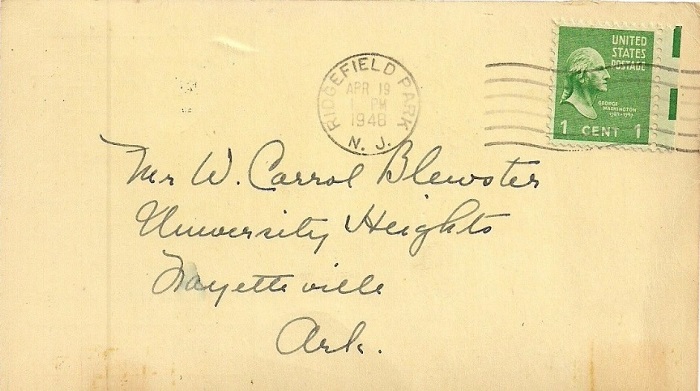 UNITED
STATES
POSTAGE
GEORGE
WASHINGTON
1 CENT 1
RIDGEFIELD PARK
APR 19
1 PM
1948
N. J.
Mr W. Carrol Blewster
University Heights
Fayetteville
Ark.